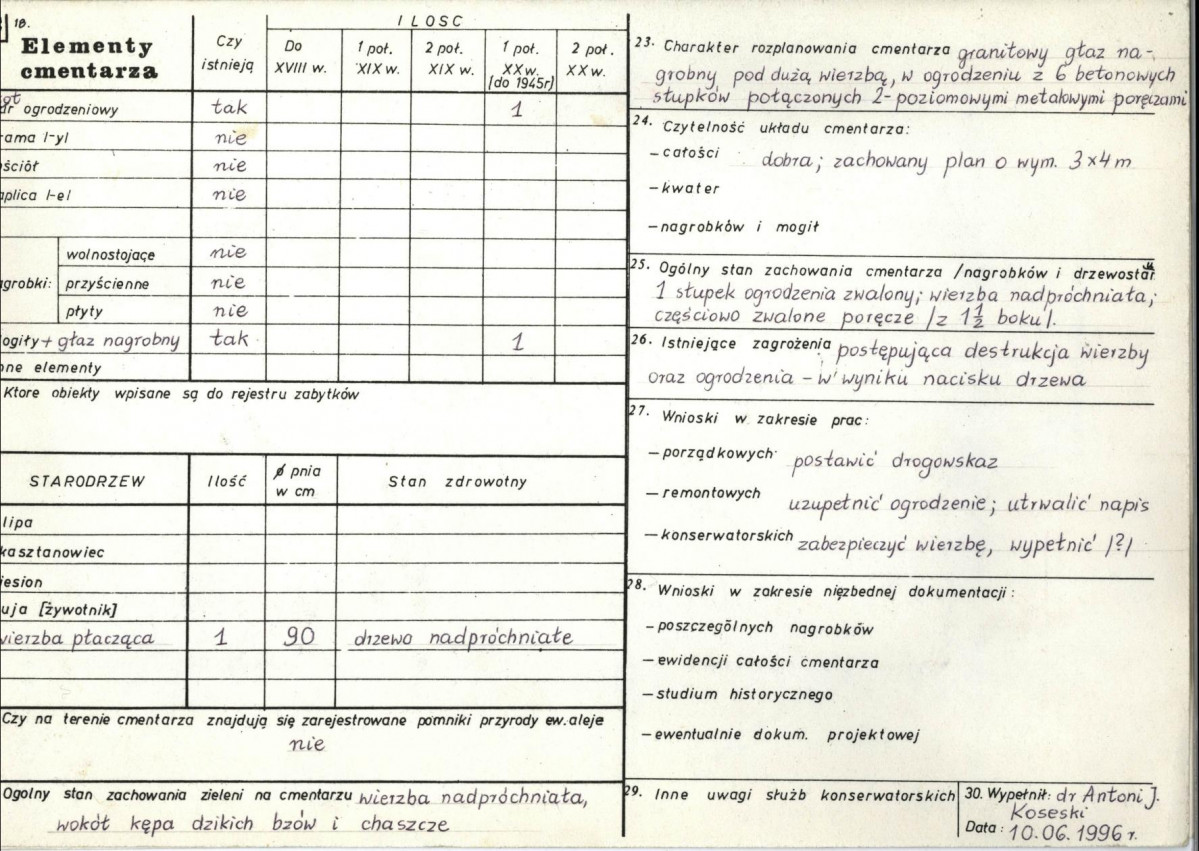 18.
Elementy
cmentarza
Czy
istnieją
ILOSC
Do
XVIII w.
1 poł.
XIX w.
2 poł.
XIX w.
1 poł.
XX w.
[do 1945r]
2 poł.
XX w.
ot
ur ogrodzeniowy tak 1
rama /-y/ nie
ościół nie
aplica /-e/ nie
agrobki:
wolnostojące nie
przyścienne nie
płyty nie
ogiły + głaz nagrobny tak 1
nne elementy
Ktore obiekty wpisane są do rejestru zabytków
STARODRZEW Ilość ø pnia
w cm Stan zdrowotny
lipa
kasztanowiec
jesion
uja [żywotnik]
wierzba płacząca 1 90 drzewo nadpróchniałe
Czy na terenie cmentarza znajdują się zarejestrowane pomniki przyrody ew. aleje
nie
Ogolny stan zachowania zieleni na cmentarzu wierzba nadpróchniała,
wokół kępa dzikich bzów i chaszcze
23. Charakter rozplanowania cmentarza granitowy głaz na-
grobny pod dużą wierzbą, w ogrodzeniu z 6 betonowych
słupków połączonych 2-poziomowymi metalowymi poręczami
24. Czytelność układu cmentarza:
- całości dobra; zachowany plan o wym. 3x4 m
- kwater
- nagrobków i mogił
25. Ogólny stan zachowania cmentarza /nagrobków i drzewostanu
1 słupek ogrodzenia zwalony; wierzba nadpróchniała;
częściowo zwalone poręcze /z 1 1/2 boku/.
26. Istniejące zagrożenia postępująca destrukcja wierzby
oraz ogrodzenia - w wyniku nacisku drzewa
27. Wnioski w zakresie prac:
- porządkowych postawić drogowskaz
- remontowych uzupełnić ogrodzenie; utrwalić napis
- konserwatorskich zabezpieczyć wierzbę, wypełnić /?/
28. Wnioski w zakresie nięzbednej dokumentacji:
- poszczególnych nagrobków
- ewidencji całości cmentarza
- studium historycznego
- ewentualnie dokum. projektowej
29. Inne uwagi służb konserwatorskich
30. Wypełnił: dr Antoni J.
Koseski
Data: 10.06.1996 r.